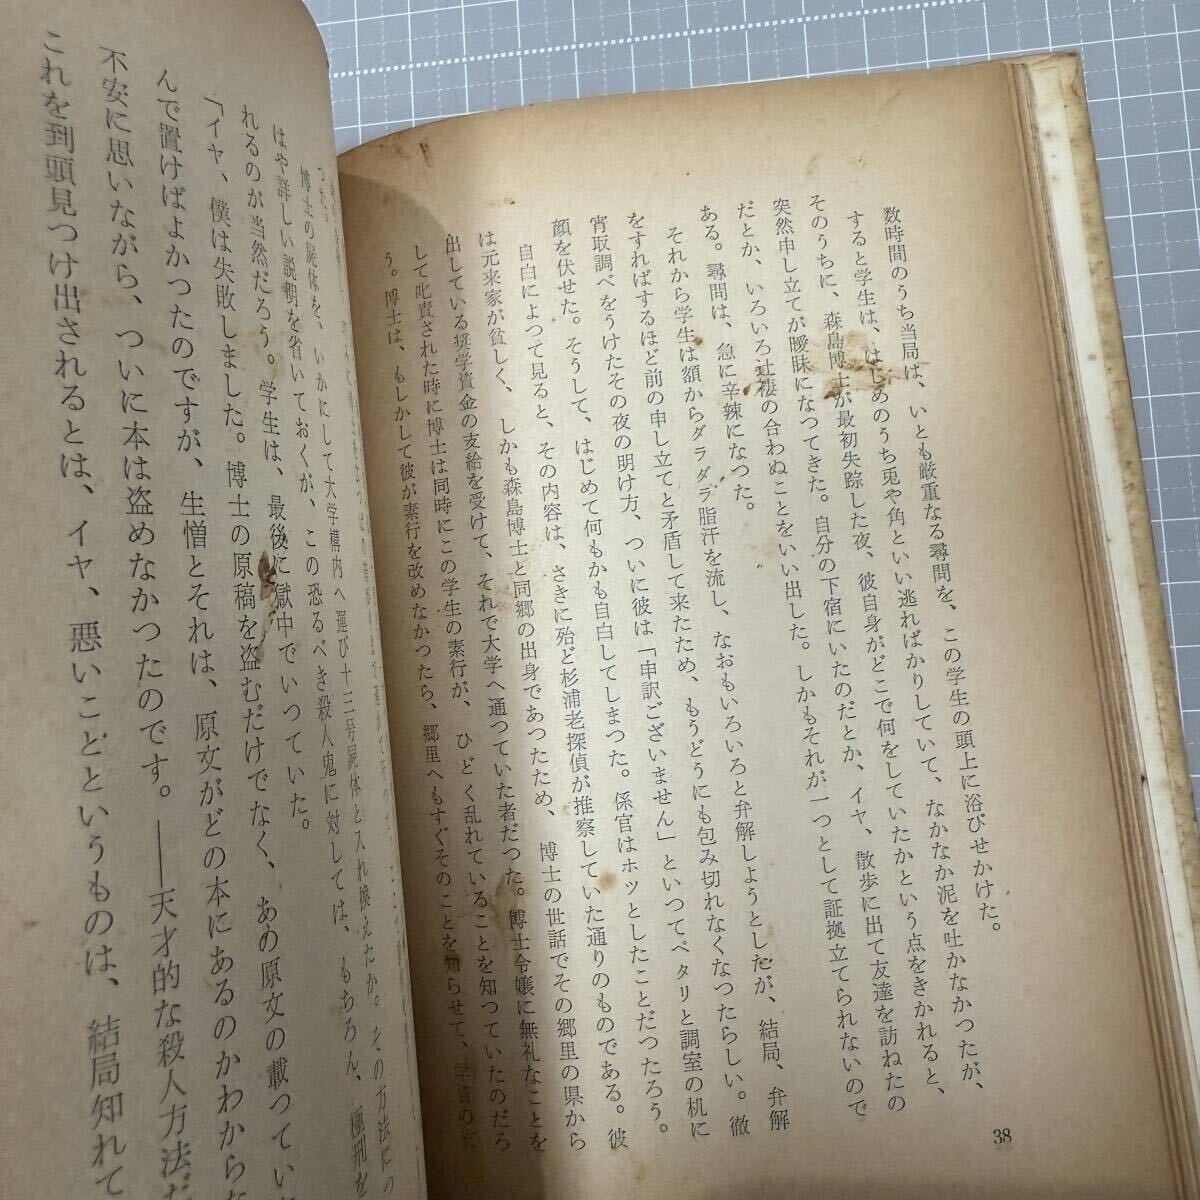 数時間のうち当局は、いとも厳重なる尋問を、この学生の頭上に浴びせかけた。
すると学生は、はじめのうち兎や角といい逃ればかりしていて、なかなか泥を吐かなかつたが、
そのうちに、森島博士が最初失踪した夜、彼自身がどこで何をしていたかという点をきかれると、
突然申し立てが曖昧になつてきた。自分の下宿にいたのだとか、イヤ、散歩に出て友達を訪ねたの
だとか、いろいろ辻褄の合わぬことをいい出した。しかもそれが一つとして証拠立てられないので
ある。尋問は、急に辛辣になつた。
それから学生は額からダラダラ脂汗を流し、なおもいろいろと弁解しようとしたが、結局、弁解
をすればするほど前の申し立てと矛盾して来たため、もうどうにも包み切れなくなつたらしい。徹
宵取調べをうけたその夜の明け方、ついに彼は「申訳ございません」といつてペタリと調室の机に
顔を伏せた。そうして、はじめて何もかも自白してしまつた。係官はホッとしたことだつたろう。
自白によつて見ると、その内容は、さきに殆ど杉浦老探偵が推察していた通りのものである。彼
は元来家が貧しく、しかも森島博士と同郷の出身であつたため、博士の世話でその郷里の県から
出している奨学資金の支給を受けて、それで大学へ通つていた者だつた。博士令嬢に無礼なことを
して叱責された時に博士は同時にこの学生の素行が、ひどく乱れていることを知つていたのだろ
う。博士は、もしかして彼が素行を改めなかつたら、郷里へもすぐそのことを知らせて、学資の
38
博士の屍体を、いかにして大学構内へ運び十三号屍体と入れ換えたか。その方法に
はや詳しい説明を省いておくが、この恐るべき殺人鬼に対しては、もちろん、極刑を
れるのが当然だろう。学生は、最後に獄中でいつていた。
「イヤ、僕は失敗しました。博士の原稿を盗むだけでなく、あの原文の載つてい
んで置けばよかつたのですが、生憎とそれは、原文がどの本にあるのかわからな
不安に思いながら、ついに本は盗めなかつたのです。――天才的な殺人方法だ
これを到頭見つけ出されるとは、イヤ、悪いことというものは、結局知れて